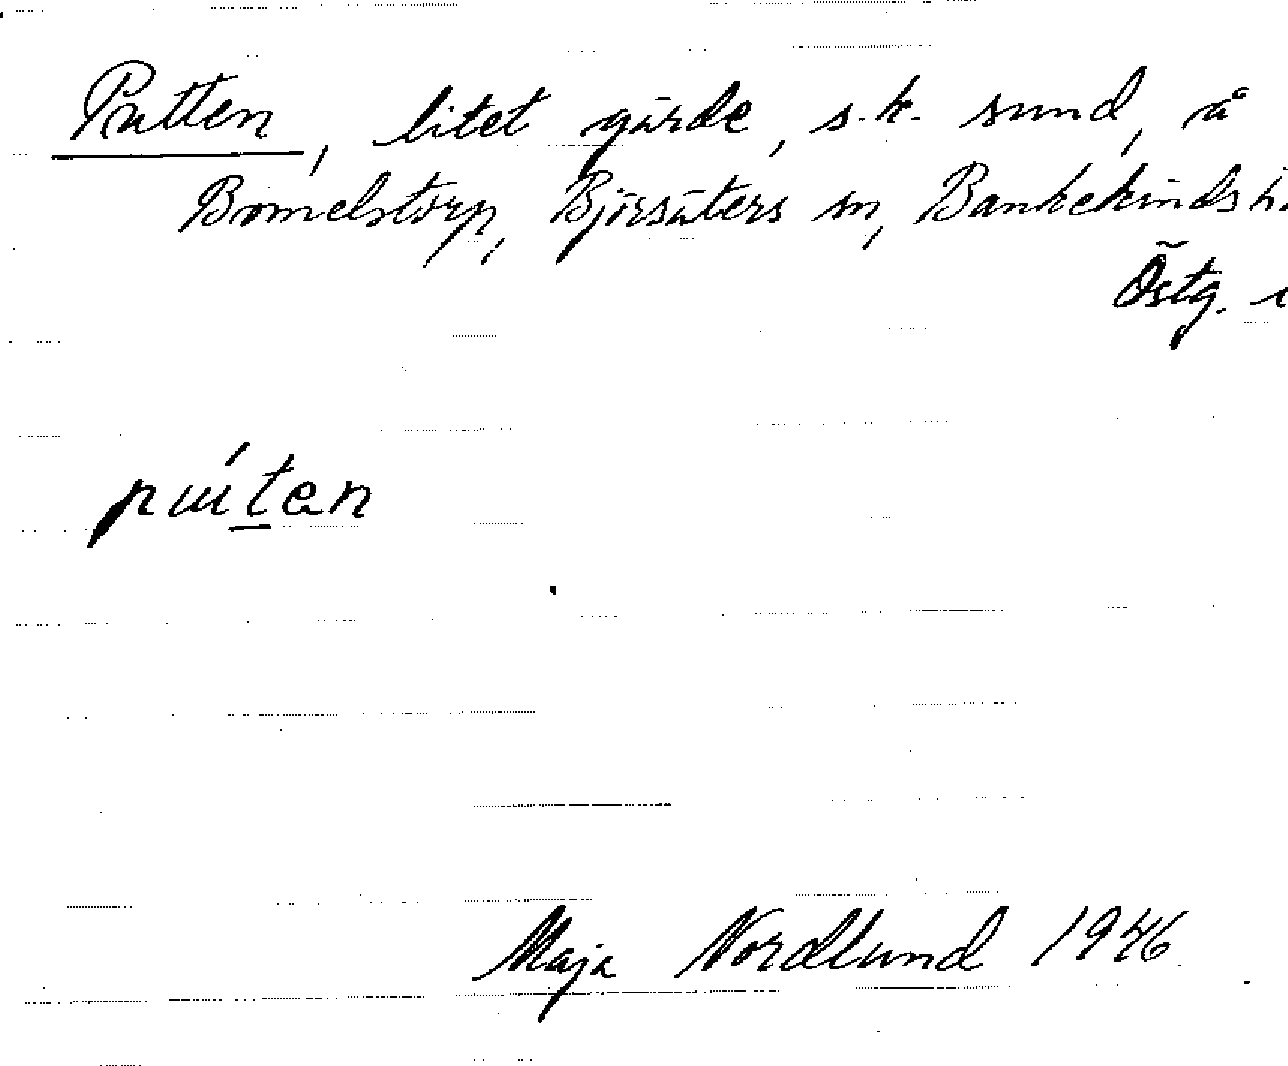 Putten, litet gärde, s.k. sund, å
Bomelstorp, Björsäters sn, Bankekinds
Östg.
Maja Nordlund 1946